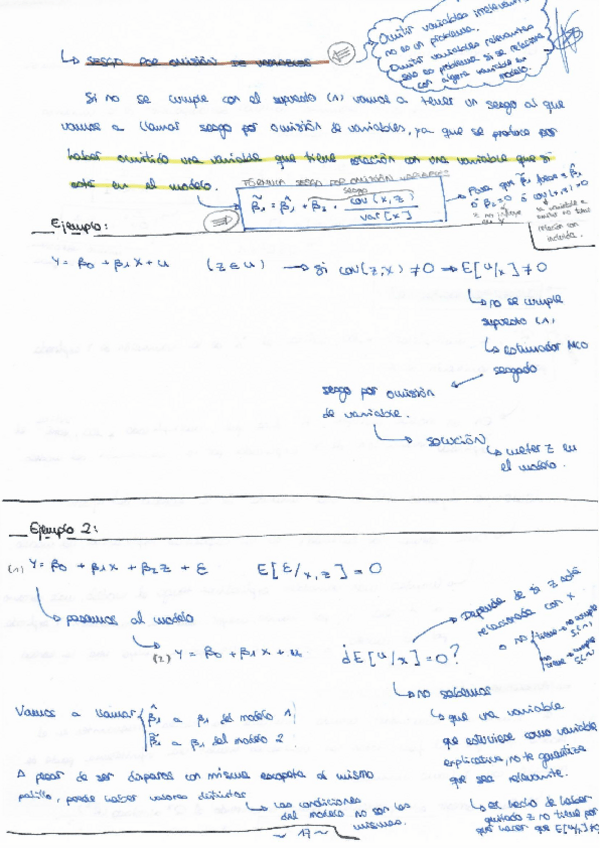 Omitir variables irrelevantes
no es un problema.
Omitir variables relevantes
solo es problema si se relaciona
con alguna variable en
modelo.
↳ SESGO POR OMISIÓN DE VARIABLES
Si no se cumple con el supuesto (1) vamos a tener un sesgo al que
vamos a llamar sesgo por omisión de variables, ya que se produce por
haber omitido una variable que tiene relación con una variable que sí
está en el modelo.
FÓRMULA SESGO POR OMISIÓN VARIABLES
sesgo
β̃₁ = β̂₁ + β̂₂ · cov(x,z) / var[x]
Para que β̃₁ fuese = β̂₁
ó β₂ = 0 ó cov(x,z) = 0
x no influye
Ejemplo:
Y = β0 + β1X + u (Z ∈ u) → si cov(z,x) ≠ 0 → E[u/x] ≠ 0
↳ no se cumple
supuesto (1)
↳ estimador MCO
sesgado
sesgo por omisión
de variable.
↳ solución
↳ meter z en
el modelo.
Ejemplo 2:
(1) Y = β0 + β1X + β2Z + ε E[ε/x,z] = 0
↳ pasamos al modelo
↳ (2) Y = β0 + β1X + u ¿E[u/x] = 0?
→ Depende de si z está
relacionada con x
o no
↳ no sabemos
↳ que una variable
que estuviese como variable
explicativa, no te garantiza
que sea relevante.
↳ el hecho de haber
quitado z no tiene por
qué hacer que E[u/x] ≠ 0
Vamos a llamar { β̂₁ a β₁ del modelo 1
β̃₁ a β₁ del modelo 2
A pesar de ser disparos con misma escopeta al mismo
palillo, puede haber valores distintos
↳ las condiciones
del modelo no son las
mismas.
~ 17 ~